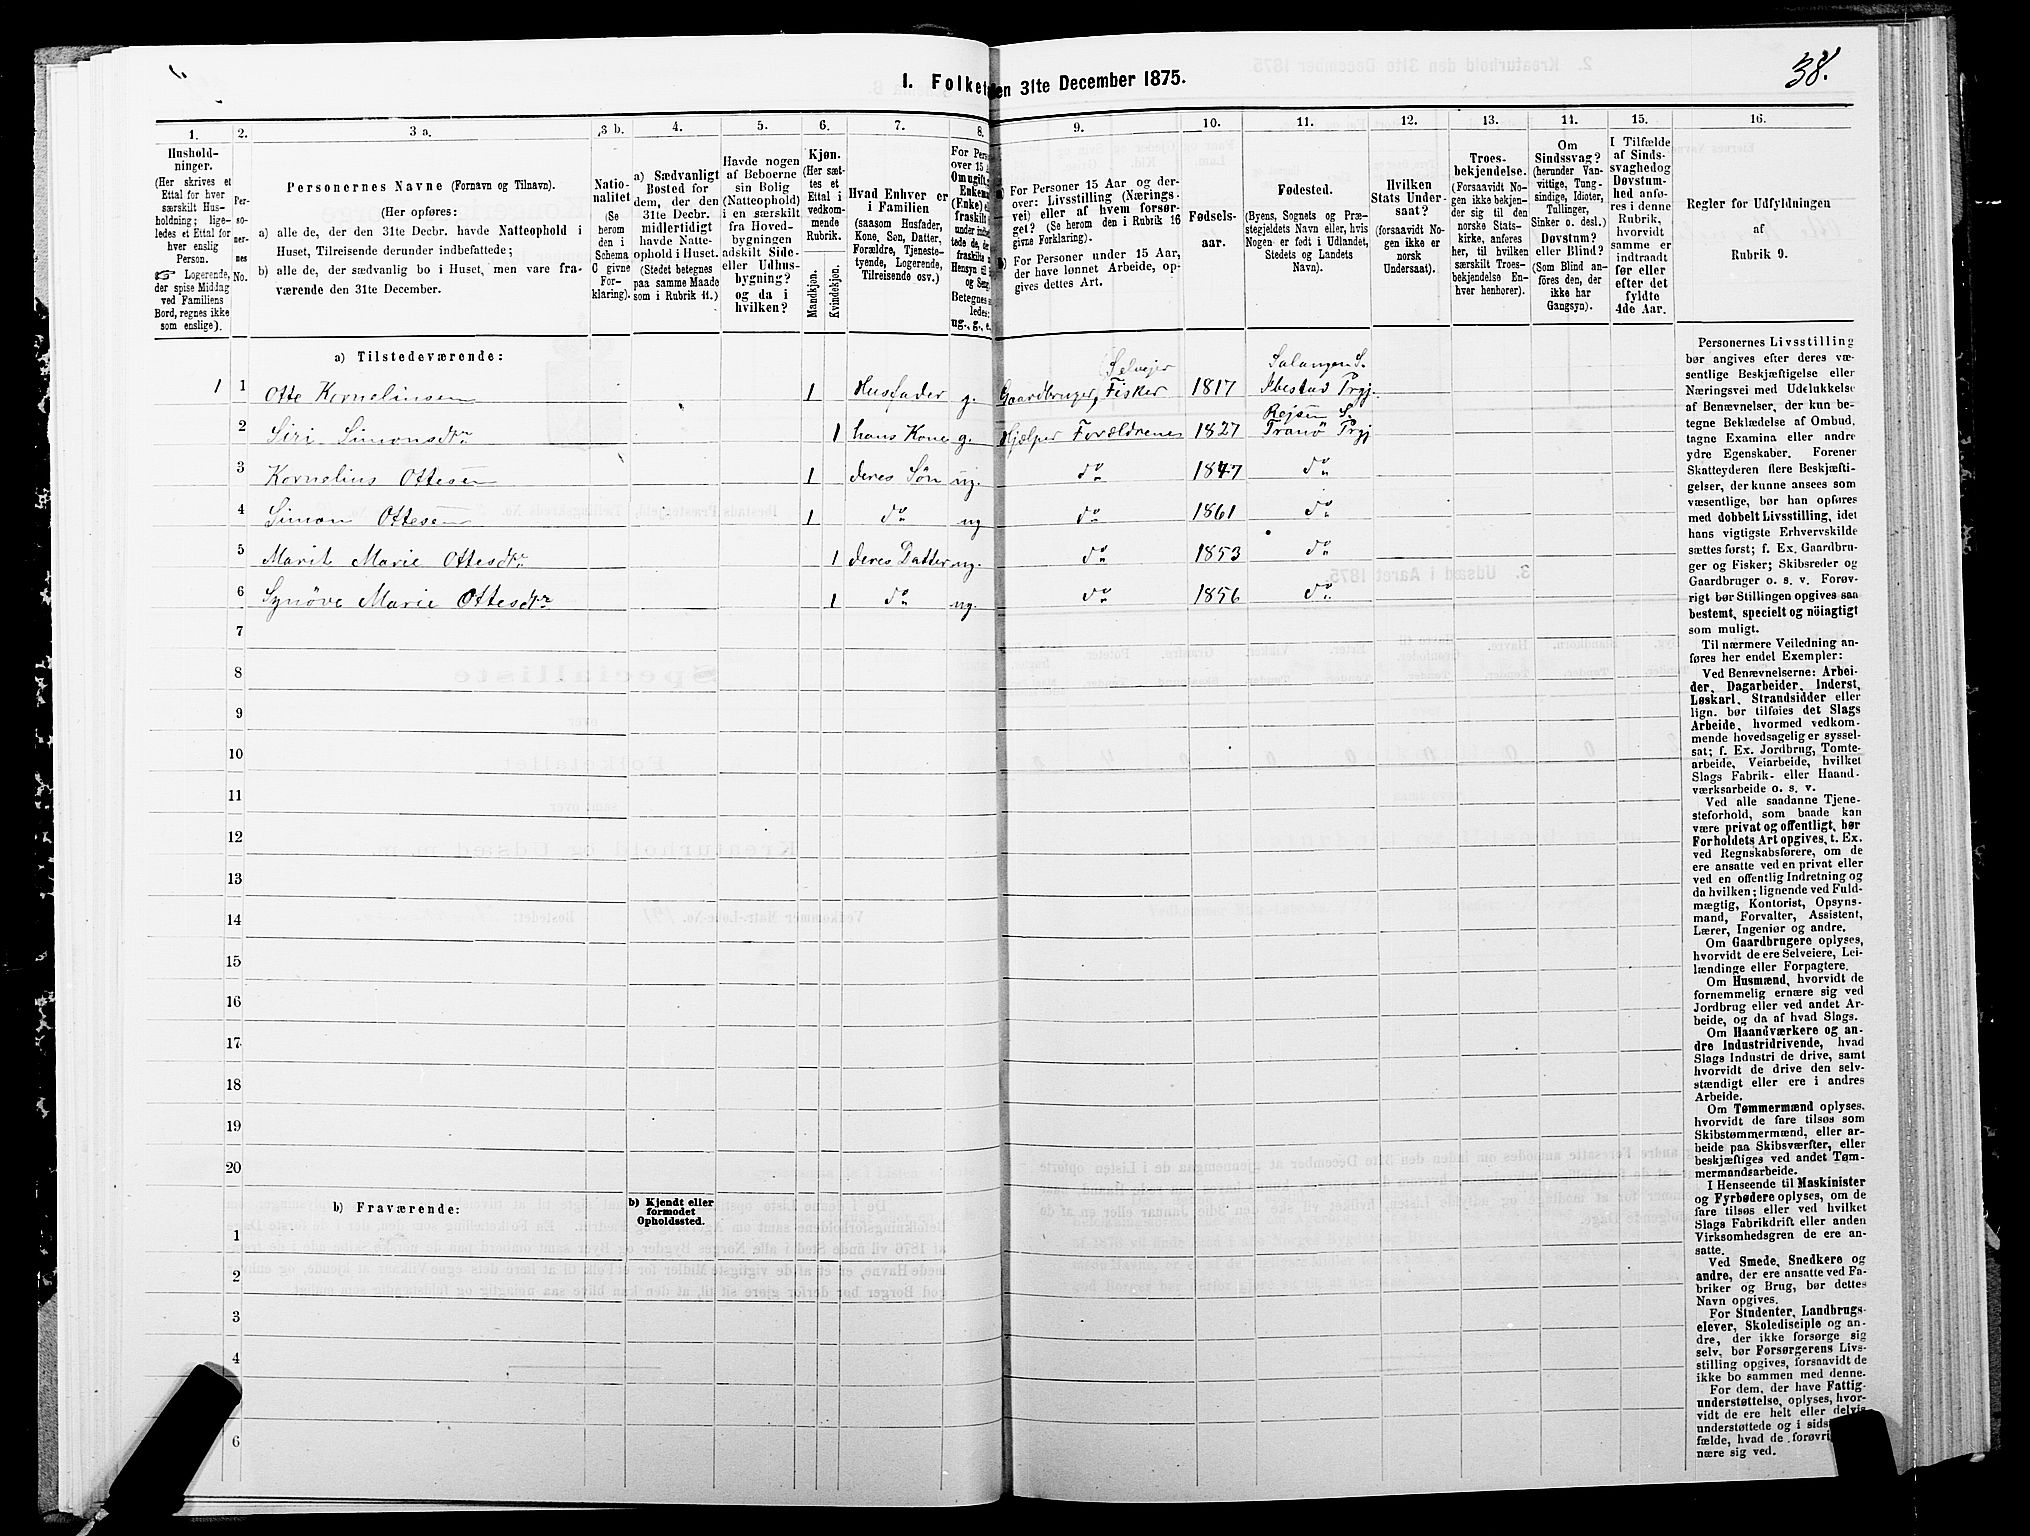 38.
I. Folket en 31te December 1875.
1. 2. 3 a. 3 b. 4. 5. 6. 7. 8. 9. 10. 11. 12. 13. 14. 15. 16.
Hushold-
ninger.
(Her skrives et
Ettal for hver
særskilt Hus-
holdning; lige-
ledes et Ettal for
hver enslig
Person.
☞ Logerende,
der spise Middag
ved Familiens
Bord, regnes ikke
som enslige).
Per-
so-
ner-
nes
No.
Personernes Navne (Fornavn og Tilnavn).
(Her opføres:
a) alle de, der den 31te Decbr. havde Natteophold i
Huset, Tilreisende derunder indbefattede;
b) alle de, der sædvanlig bo i Huset, men vare fra-
værende den 31te December.
Natio-
nalitet
(Se
herom
den i
Schema
C givne
For-
klaring).
a) Sædvanligt
Bosted for
dem, der den
31te Decbr.
midlertidigt
havde Natte-
ophold i Huset.
(Stedet betegnes
paa samme Maade
som i Rubrik 11.)
Havde nogen
af Beboerne
sin Bolig
(Natteophold)
i en særskilt
fra Hoved-
bygningen
adskilt Side-
eller Udhus-
bygning?
og da i
hvilken?
Kjøn.
(Her sæt-
tes et
Ettal i
vedkom-
mende
Rubrik.
Mandkjøn.
Kvindekjøn.
Hvad Enhver er
i Familien
(saasom Husfader,
Kone, Søn, Datter,
Forældre, Tjeneste-
tyende, Logerende,
Tilreisende osv.)
For Pers
over 15
Omugift,
Enkem
(Enke) e
fraskilt
under indbe
tede de, de
fraskilte
Hensyn til
og Seng
Betegnes
ledes:
ug., g., e.
a) For Personer 15 Aar og der-
over: Livsstilling (Nærings-
vei) eller af hvem forsør-
get? (Se herom den i Rubrik 16
givne Forklaring).
b) For Personer under 15 Aar,
der have lønnet Arbeide, op-
gives dettes Art.
Fødsels-
aar.
Fødested.
(Byens, Sognets og Præ-
stegjeldets Navn, eller hvis
Nogen er født i Udlandet,
Stedets og Landets
Navn).
Hvilken
Stats Under-
saat?
(forsaavidt No-
gen ikke er
norsk
Undersaat).
Troes-
bekjendelse.
(Forsaavidt No-
gen ikke bekjen-
der sig til den
norske Stats-
kirke, anføres
her, til hvilken
særskilt Troes-
bekjendelse En-
hver henhorer).
Om
Sindssvag?
(herunder Van-
vittige, Tung-
sindige, Idioter,
Tullinger,
Sinker o. desl.)
Døvstum?
eller Blind?
(Som Blind an-
føres den, der
ikke har
Gangsyn).
I Tilfælde
af Sinds-
svaghed og
Døvstum-
hed anfø-
res i denne
Rubrik,
hvorvidt
samme er
indtraadt
før eller
efter det
fyldte
4de Aar.
Regler for Udfyldningen
af
Rubrik 9.
a) Tilstedeværende:
Selvejer Salangen S.
1 1 Otte Kornelinsen 1 Husfader g. Gaardbruger, Fisker 1817 Ibestad Prgj.
Rejsen S.
2 Siri Simonsdtr 1 hans Kone g. Hjælper Forældrene 1827 Tranö Prgj
3 Kornelius Ottesen 1 deres Søn ug. do 1847 do
4 Simon Ottesen 1 do ug do 1861 do
5 Marit Marie Ottesdtr 1 deres Datter ug. do 1853 do
6 Synöve Marie Ottesdtr 1 do ug. do 1856 do
7
8
9
10
11
12
13
14
15
16
17
18
19
20
b) Fraværende:
b) Kjendt eller
formodet
Opholdssted.
1
2
3
4
6
Personernes Livsstilling
bør angives efter deres væ-
sentlige Beskjæftigelse eller
Næringsvei med Udelukkelse
af Benævnelser, der kun be-
tegne Beklædelse af Ombud,
tagne Examina eller andre
ydre Egenskaber. Forener
Skatteyderen flere Beskjæfti-
gelser, der kunne ansees som
væsentlige, bør han opføres
med dobbelt Livsstilling, idet
hans vigtigste Erhvervskilde
sættes først; f. Ex. Gaardbru-
ger og Fisker; Skibsreder og
Gaardbruger o. s. v. Forøv-
rigt bør Stillingen opgives saa
bestemt, specielt og nöiagtigt
som muligt.
Til nærmere Veiledning an-
føres her endel Exempler:
Ved Benævnelserne: Arbei-
der, Dagarbeider, Inderst,
Løskarl, Strandsidder eller
lign. bør tilføies det Slags
Arbeide, hvormed vedkom-
mende hovedsagelig er syssel-
sat; f. Ex. Jordbrug, Tomte-
arbeide, Veiarbeide, hvilket
Slags Fabrik- eller Haand-
værksarbeide o. s. v.
Ved alle saadanne Tjene-
steforhold, som baade kan
være privat og offentligt, bør
Forholdets Art opgives, t. Ex.
ved Regnskabsførere, om de
ere ansatte ved en privat eller
ved en offentlig Indretning og
da hvilken; lignende ved Fuld-
mægtig, Kontorist, Opsyns-
mand, Forvalter, Assistent,
Lærer, Ingeniør og andre.
Om Gaardbrugere oplyses,
hvorvidt de ere Selveiere, Lei-
lændinge eller Forpagtere.
Om Husmænd, hvorvidt de
fornemmelig ernære sig ved
Jordbrug eller ved andet Ar-
beide, og da af hvad Slags.
Om Haandværkere og an-
dre Industridrivende, hvad
Slags Industri de drive, samt
hvorvidt de drive den selv-
stændigt eller ere i andres
Arbeide.
Om Tømmermænd oplyses,
hvorvidt de fare tilsøs som
Skibstømmermænd, eller ar-
beide paa Skibsværfter, eller
beskjæftiges ved andet Tøm-
mermandsarbeide.
I Henseende til Maskinister
og Fyrbødere oplyses, om de
fare tilsøs eller ved hvilket
Slags Fabrikdrift eller anden
Virksomhedsgren de ere an-
satte.
Ved Smede, Snedkere og
andre, der ere ansatte ved Fa-
briker og Brug, bør dettes
Navn opgives.
For Studenter, Landbrugs-
elever, Skoledisciple og an-
dre, der ikke forsørge sig
selv, bør Forsørgerens Livs-
stilling opgives, forsaavidt de
ikke bo sammen med denne.
For dem, der have Fattig-
understøttelse, oplyses, hvor-
vidt de ere helt eller delvis
understøttede og i sids
fælde, hvad de forøvri
nære sig ved.